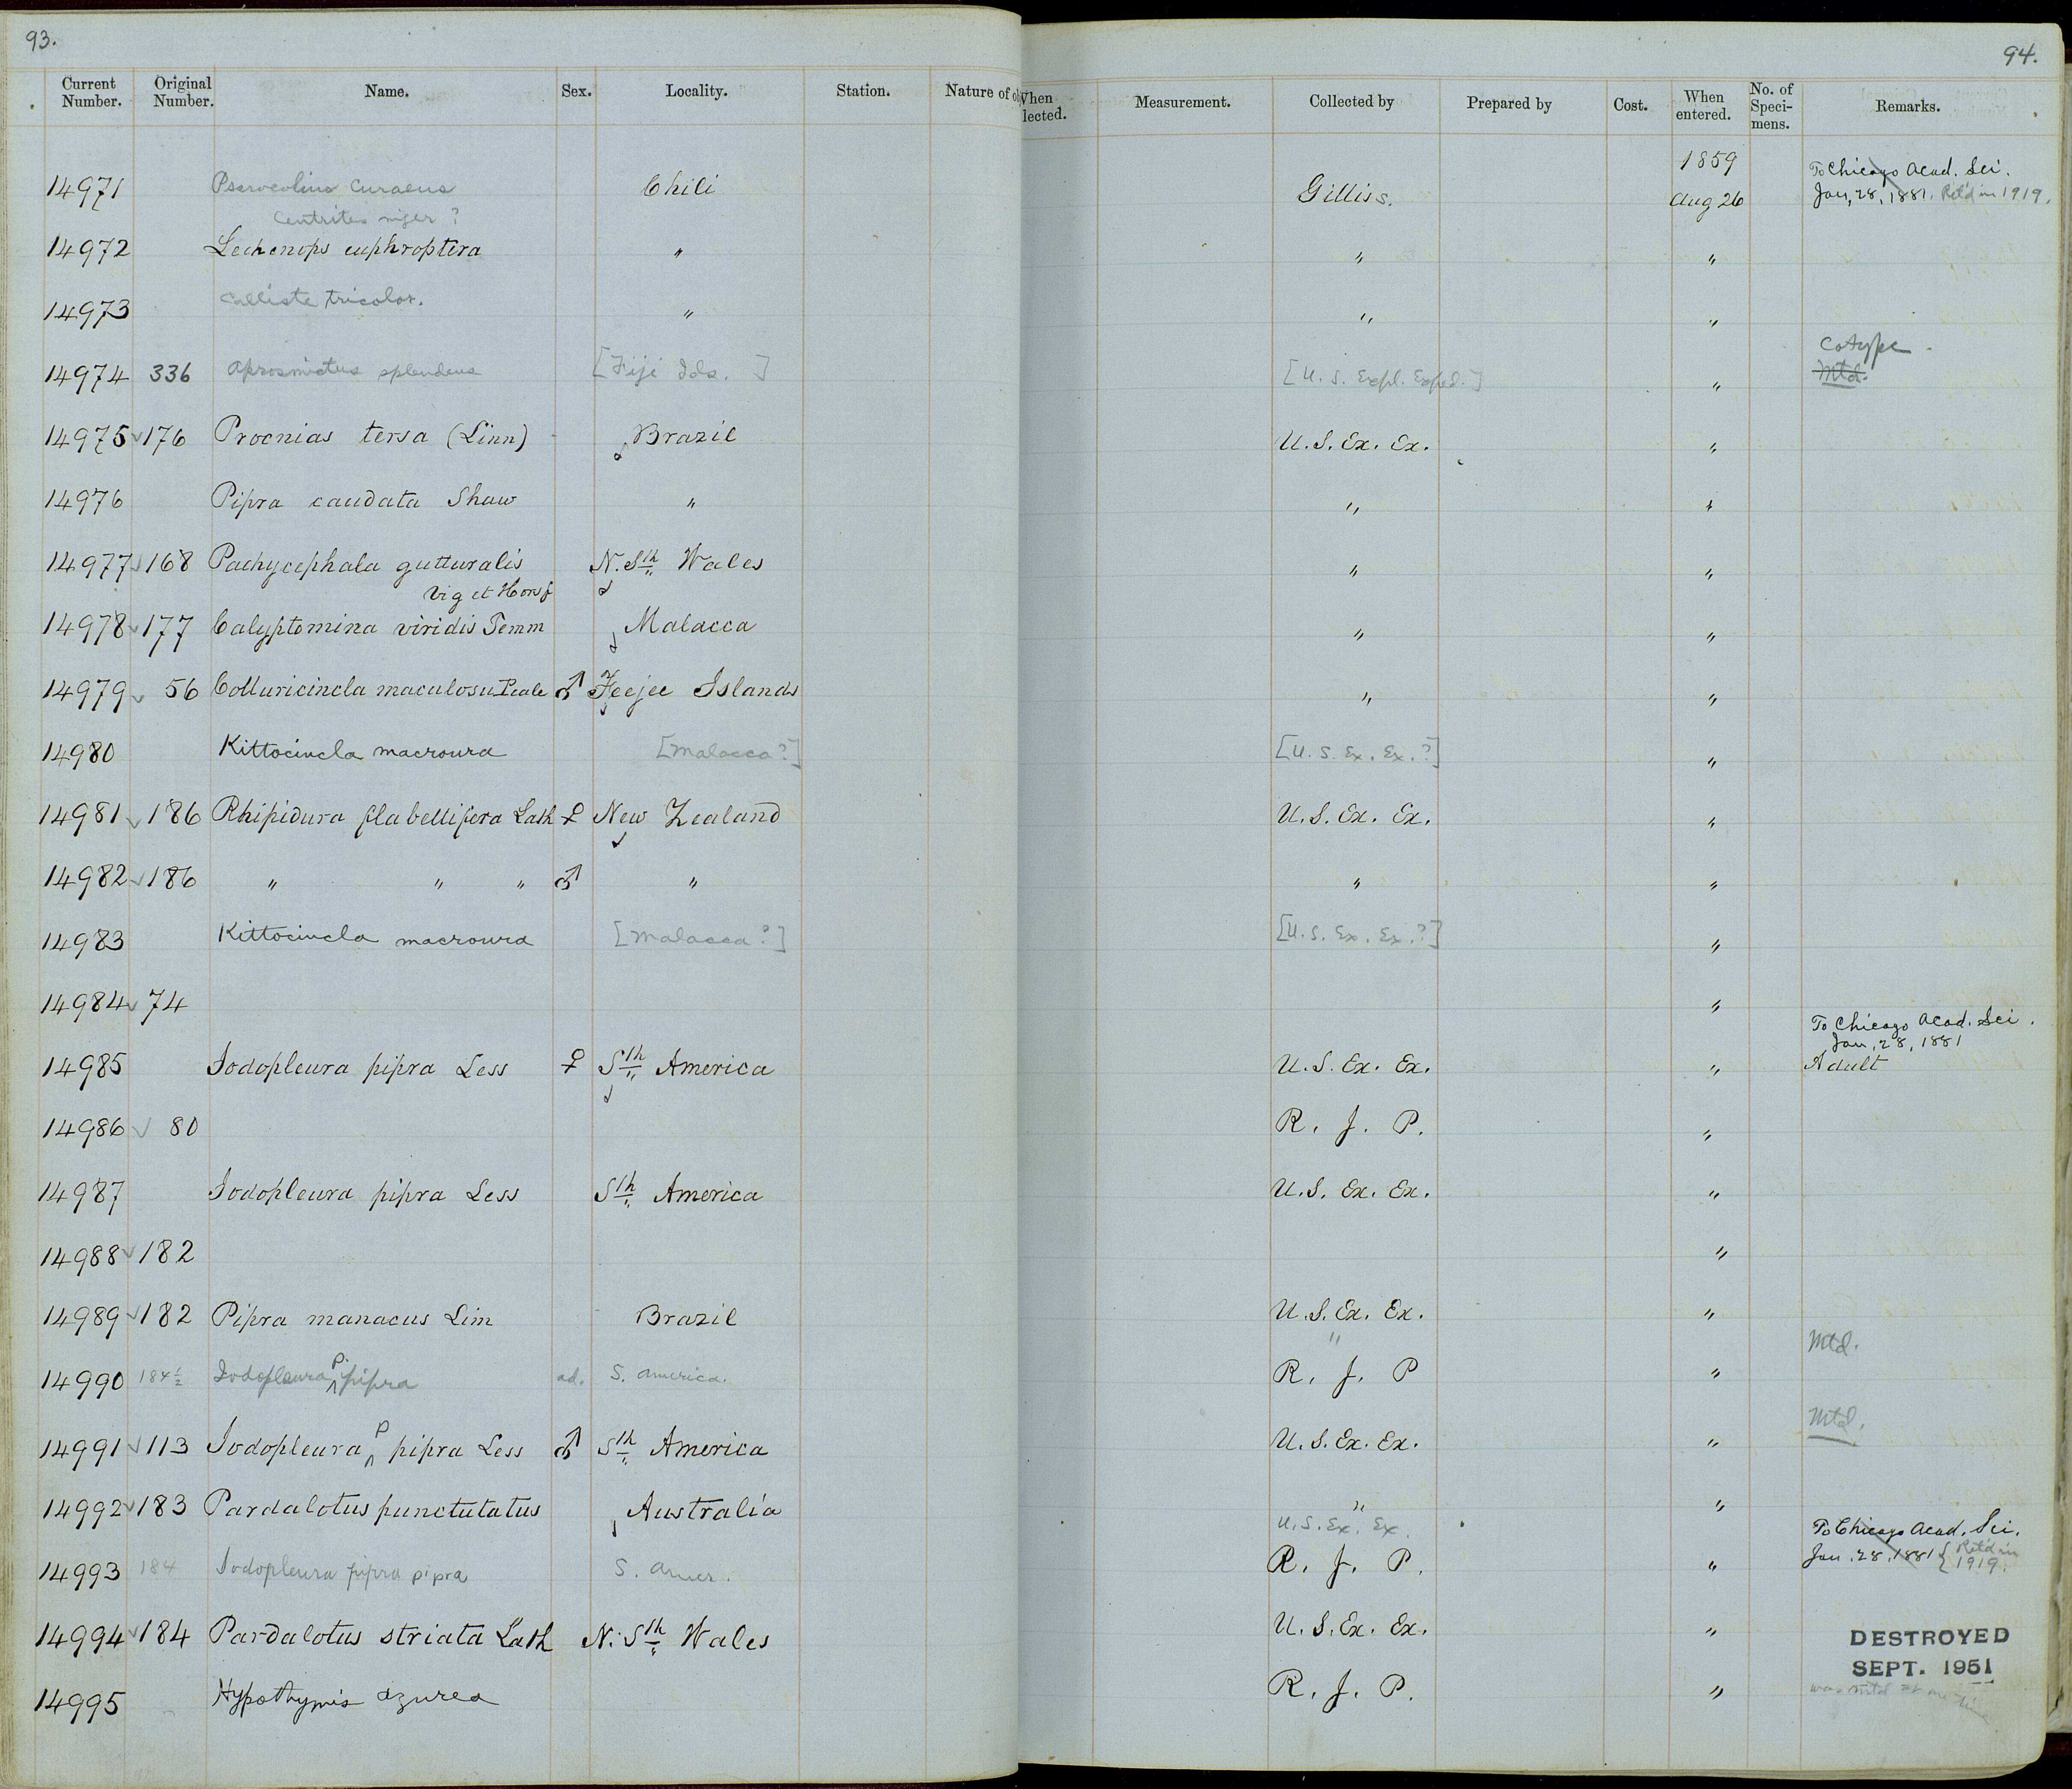 93.
94.
Current Number. Original Number. Name. Sex. Locality. Station. Nature of When lected. Measurement. Collected by Prepared by Cost. When entered. No. of Speci-mens. Remarks.
1859 To Chicago Acad. Sci.
14971 Psarocolius curaeus Chili Gilliss. Aug 26 Jan. 28, 1881. Ret'd in 1919.
Centrites niger?
14972 Lechenops euphroptera " " "
14973 Calliste tricolor. " " "
Cotype
14974 336 Aprosmictus splendens [Fiji Ids. ] [U. S. Expl. Exped.] " Mtd.
14975 176 Procnias tersa (Linn) Brazil U. S. Ex. Ex. "
14976 Pipra caudata Shaw " " "
14977 168 Pachycephala gutturalis N. Sth Wales " "
Vig et Horsf
14978 177 Calyptomina viridis Temm Malacca " "
14979 56 Colluricincla maculosa Peale ♂ Feejee Islands " "
14980 Kittocincla macroura [Malacca?] [U. S. Ex. Ex.?] "
14981 186 Rhipidura flabellifera Lath ♀ New Zealand U. S. Ex. Ex. "
14982 186 " " " ♂ " " "
14983 Kittocincla macroura [Malacca?] [U. S. Ex. Ex.?] "
14984 74 "
To Chicago Acad. Sci.
Jan. 28, 1881
14985 Iodopleura pipra Less ♀ Sth America U. S. Ex. Ex. " Adult
14986 80 R. J. P. "
14987 Iodopleura pipra Less Sth America U. S. Ex. Ex. "
14988 182 "
14989 182 Pipra manacus Lin Brazil U. S. Ex. Ex. "
" Mtd.
14990 184½ Iodopleura p. pipra ad. S. America. R. J. P "
Mtd.
14991 113 Iodopleura p pipra Less ♂ Sth America U. S. Ex. Ex. "
14992 183 Pardalotus punctutatus Australia " "
U. S. Ex. Ex. To Chicago Acad. Sci.
14993 184 Iodopleura pipra pipra S. Amer. R. J. P. " Jan. 28, 1881 { Ret'd in 1919.
14994 184 Pardalotus striata Lath N. Sth Wales U. S. Ex. Ex. "
DESTROYED
SEPT. 1951
14995 Hypothymis azurea R. J. P. " was mtd at one time